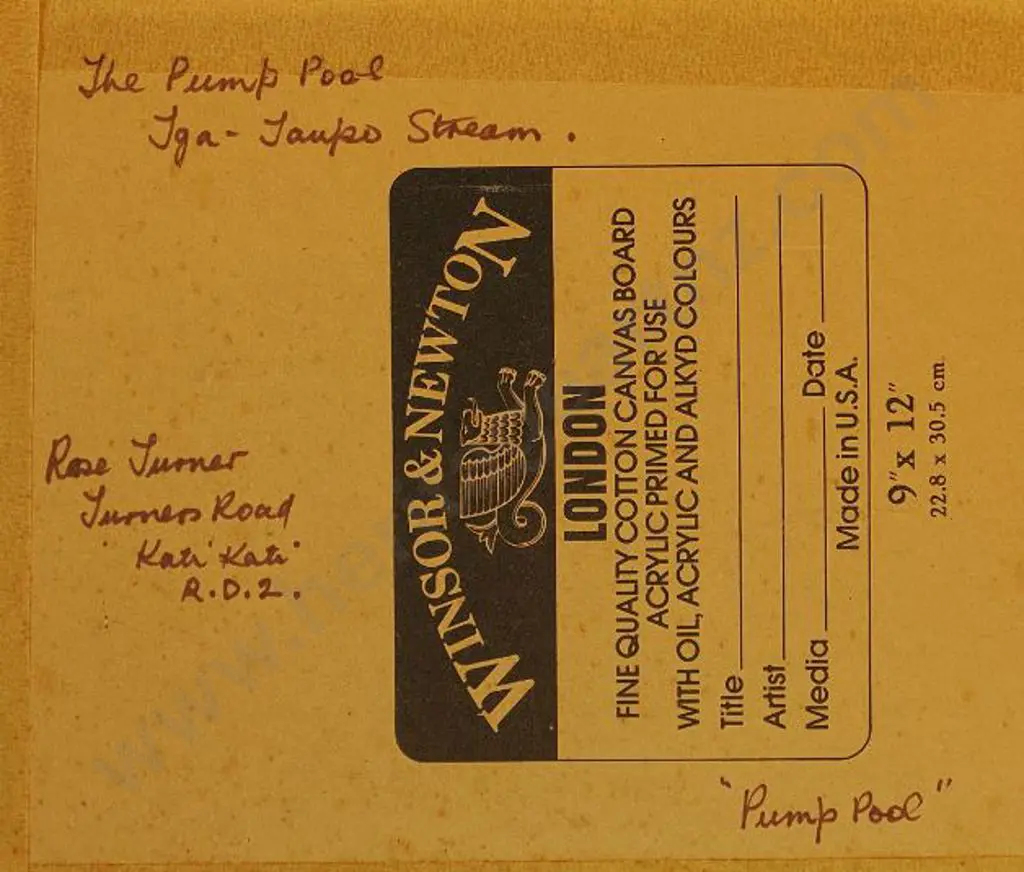 The Pump Pool
Tga-Taupo Stream.
Rose Turner
Turners Road
'Kati Kati'
R.D.2.
WINSOR & NEWTON
LONDON
FINE QUALITY COTTON CANVAS BOARD
ACRYLIC PRIMED FOR USE
WITH OIL, ACRYLIC AND ALKYD COLOURS
Title
Artist
Media Date
Made in U.S.A.
9" x 12"
22.8 x 30.5 cm
"Pump Pool"